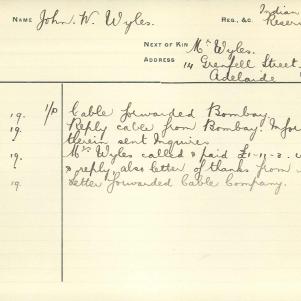 Indian
NAME John. W. Wyles. REG., &C. Reserv
NEXT OF KIN Mr Wyles.
ADDRESS 14 Grenfell Street.
Adelaide
19. 1/P Cable forwarded Bombay.
19. Reply cable from Bombay. Infor
therein sent Inquirer.
19. Mr Wyles called & paid £1-11-2.
& reply, also letter of thanks from
19 Letter forwarded Cable Company.